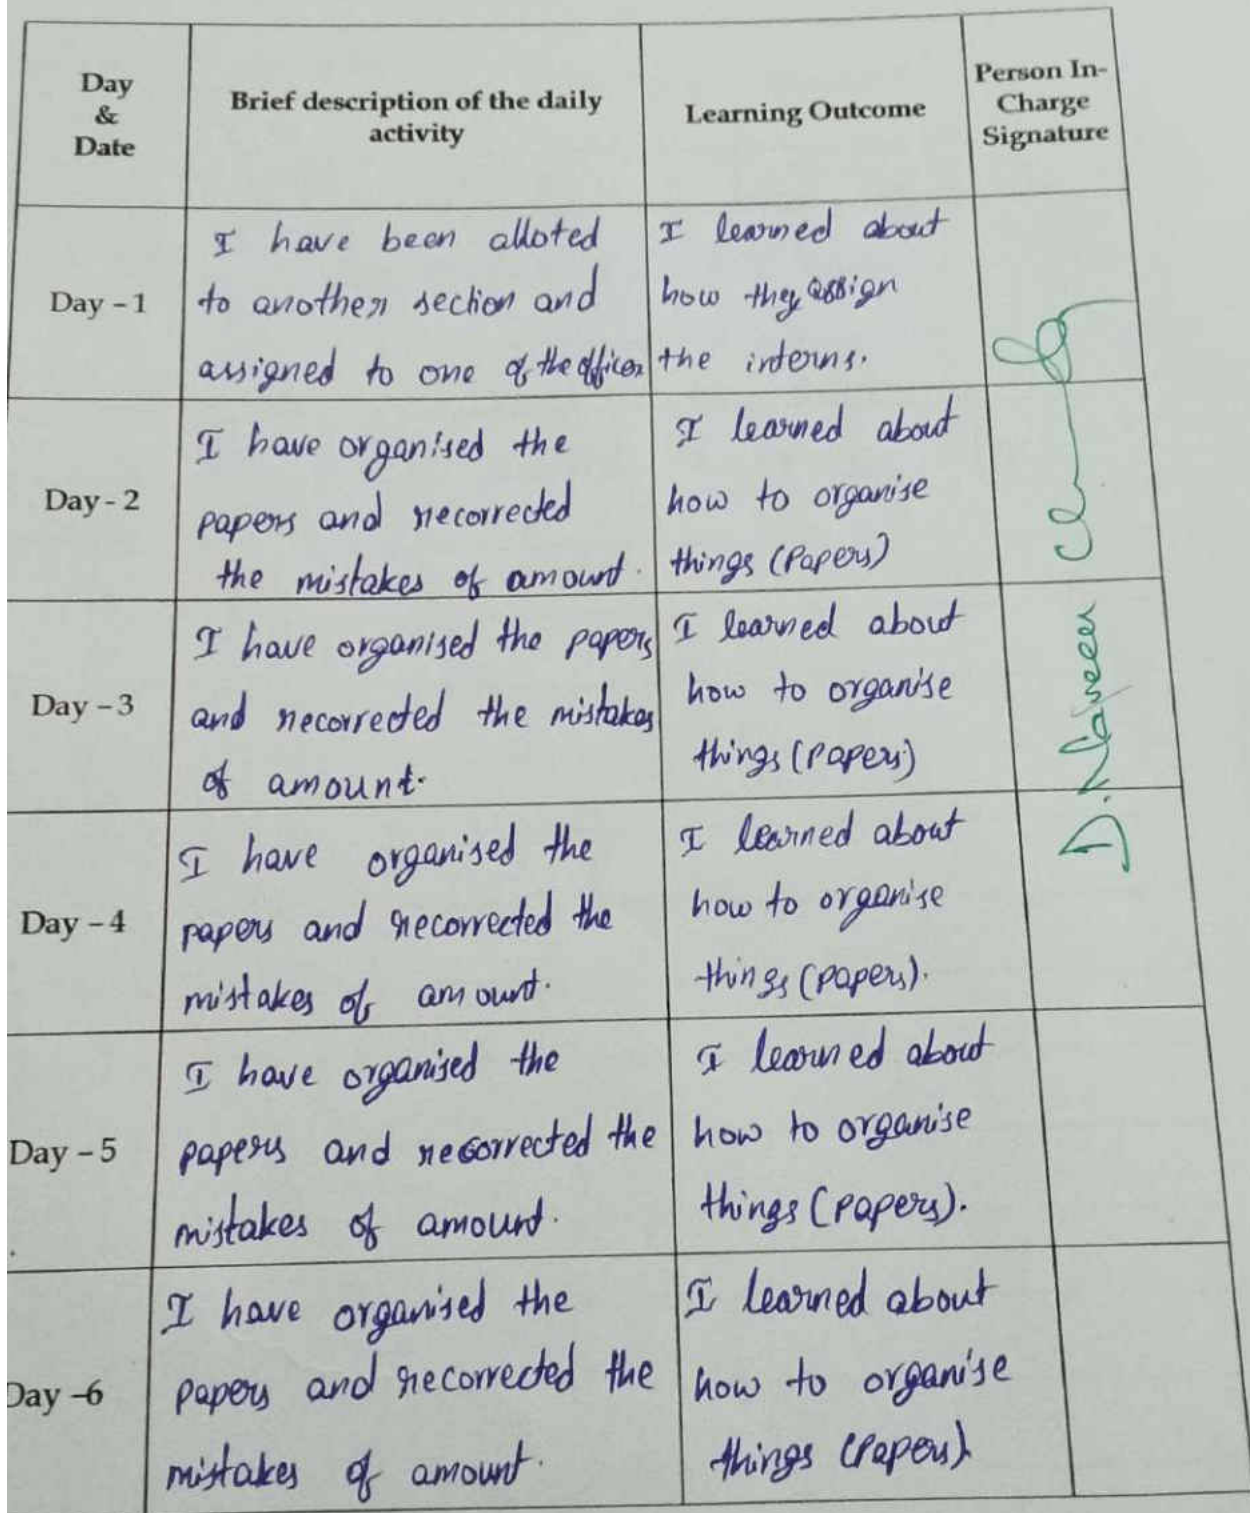 Day
&
Date
Brief description of the daily
activity
Learning Outcome
Person In-
Charge
Signature
Day - 1
I have been alloted
to another section and
assigned to one of the officer
I learned about
how they assign
the interns.
Day - 2
I have organised the
papers and recorrected
the mistakes of amount.
I learned about
how to organise
things (Papers)
Day - 3
I have organised the papers
and recorrected the mistakes
of amount.
I learned about
how to organise
things (papers)
Day - 4
I have organised the
papers and recorrected the
mistakes of amount.
I learned about
how to organise
things (papers).
Day - 5
I have organised the
papers and recorrected the
mistakes of amount.
I learned about
how to organise
things (papers).
Day -6
I have organised the
papers and recorrected the
mistakes of amount.
I learned about
how to organise
things (Papers)
D. Naveen